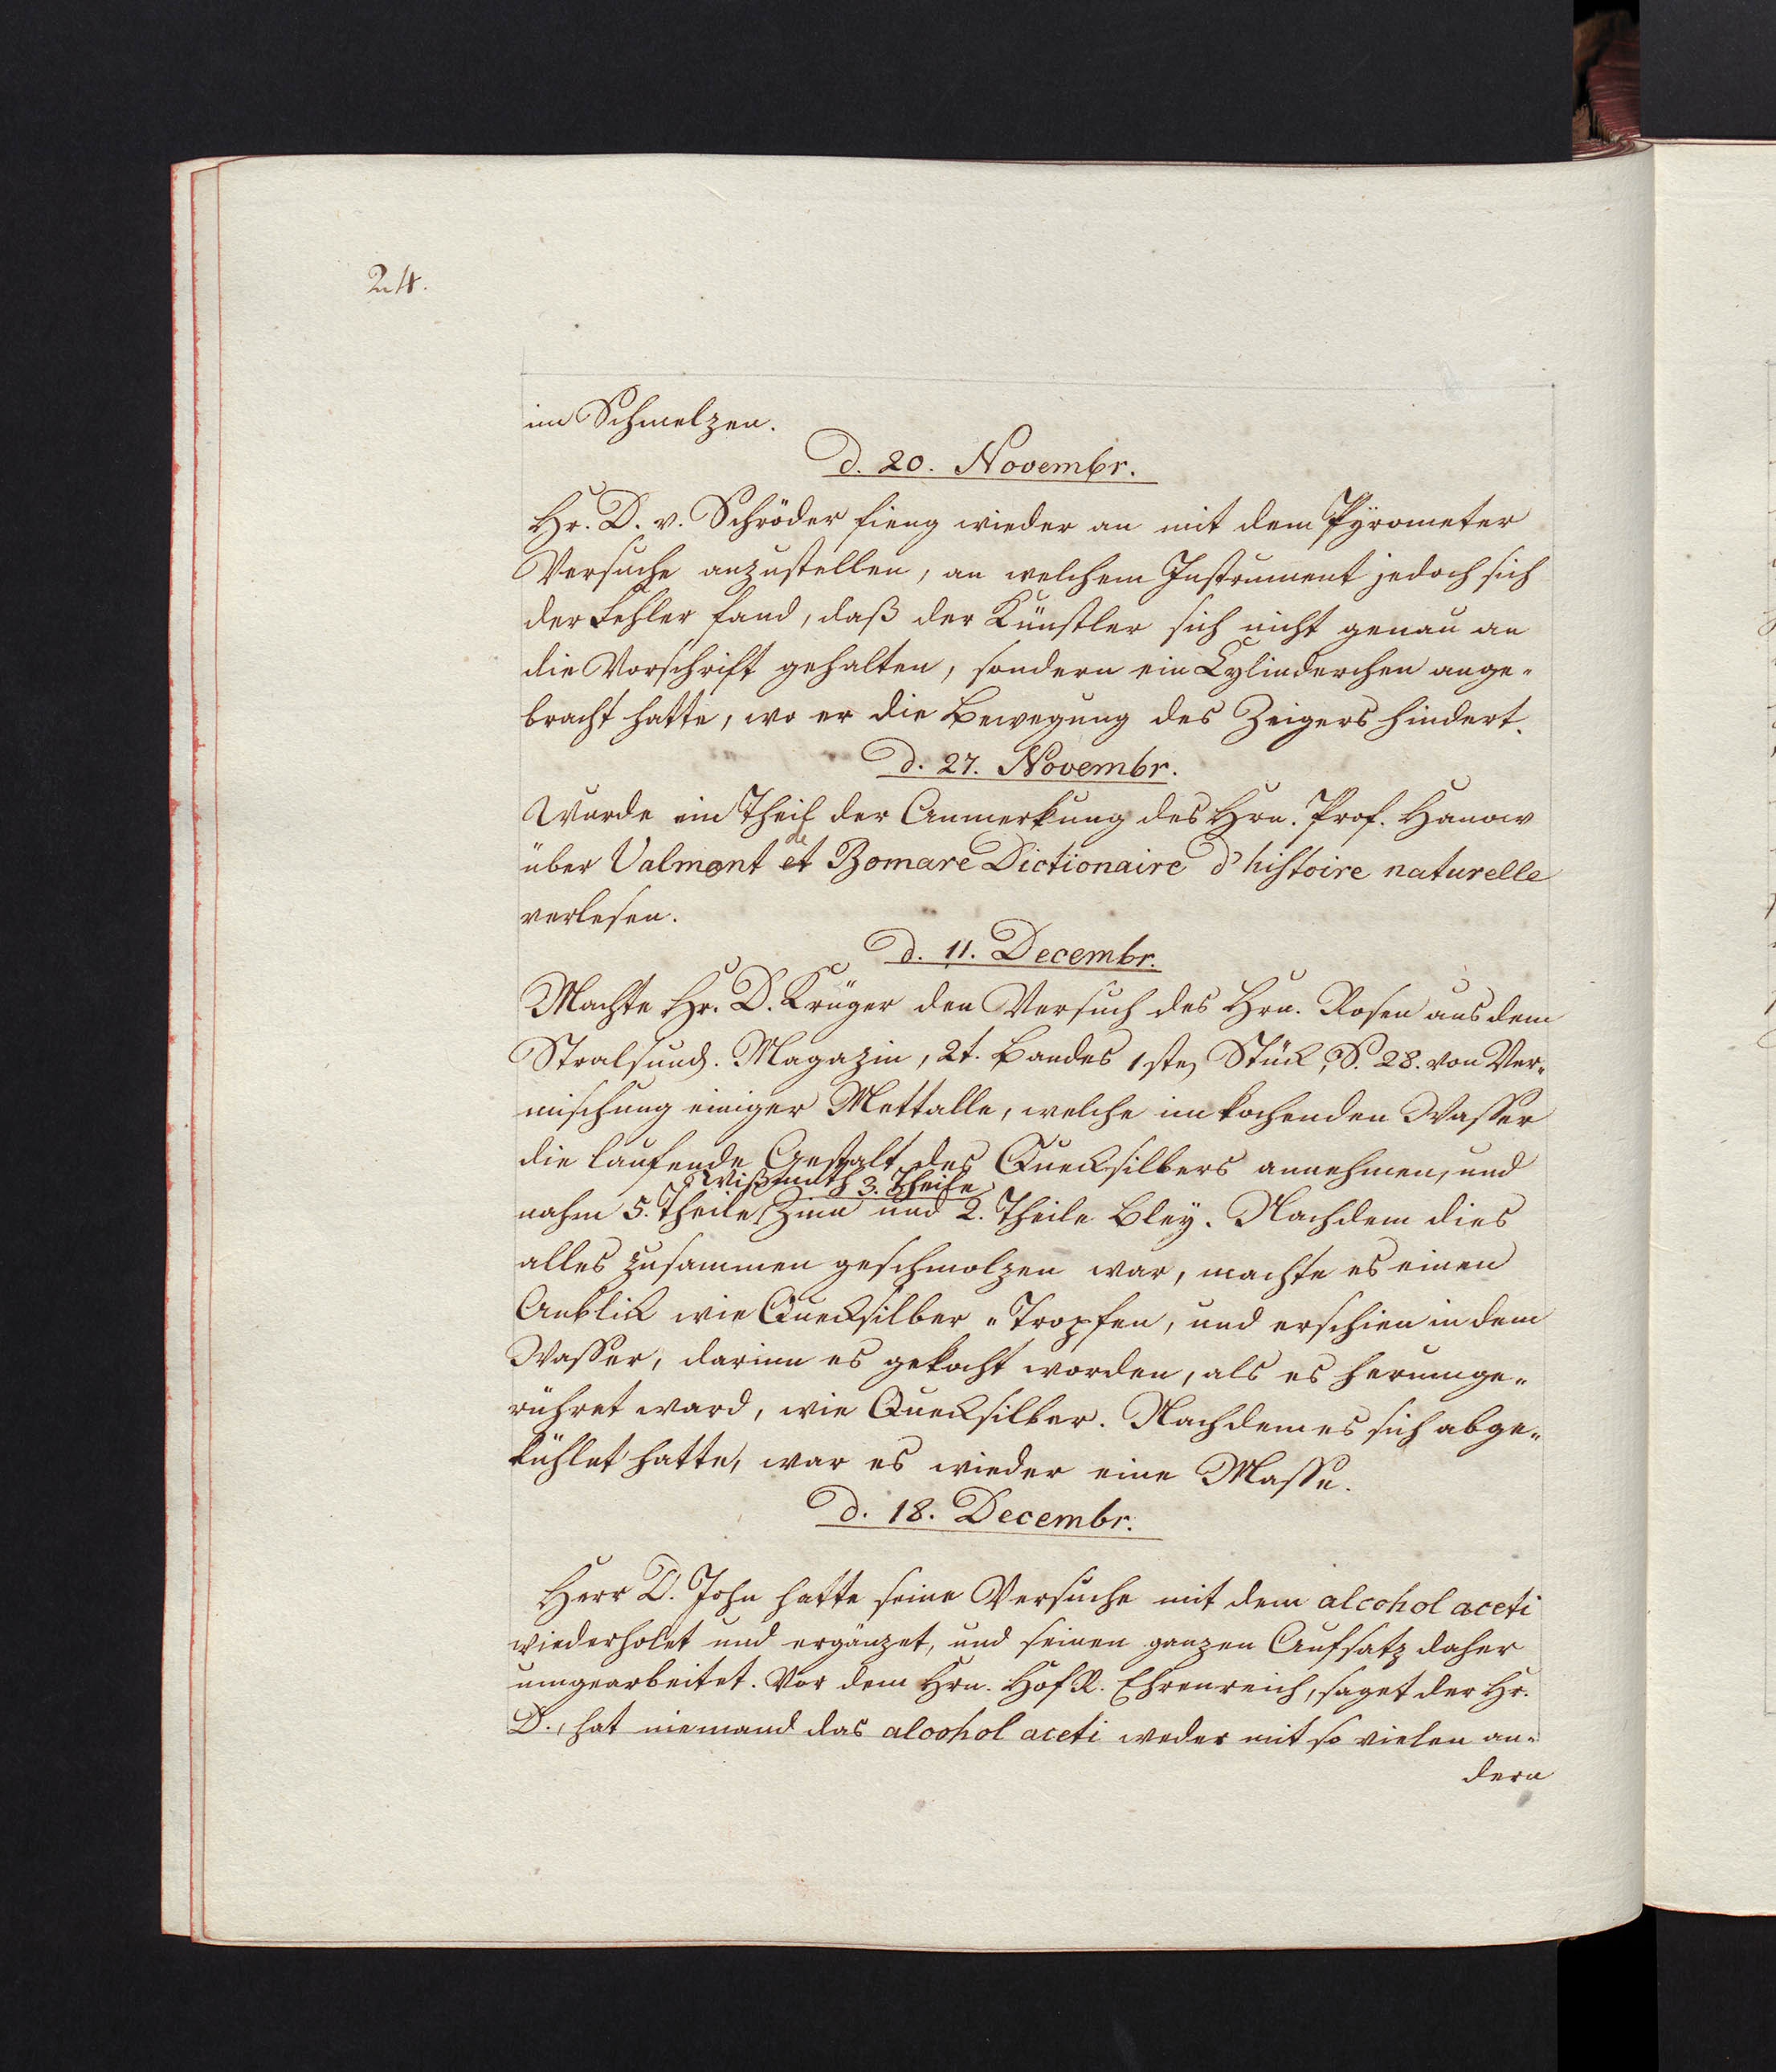 24.
im Schmelzen.
d. 20. Novembr.
Hr. D. v. Schröder fieng wieder an mit dem Pÿrometer
Versuche anzustellen, an welchem Instrument jedoch sich
der Fehler fand, daß der Künstler sich nicht genau an
die Vorschrift gehalten, sondern ein Cylinderchen ange-
bracht hatte, wo er die Bewegung des Zeigers hindert.
d. 27. Novembr.
Wurde ein Theil der Anmerkung des Hrn. Prof. Hanow
de
über Valmont et Bomare Dictionaire d'histoire naturelle
verlesen.
d. 11. Decembr.
Machte Hr. D. Krüger den Versuch des Hrn. Rosen aus dem
Stralsund. Magazin, 2t. Bandes 1stes Stück, S. 28. von Ver-
mischung einiger Mettalle, welche im kochenden Wasser
die laufende Gestalt des Quecksilbers annehmen, und
Wißmuth 3. Theile
nahm 5. Theile Zinn und 2. Theile Bleÿ. Nachdem dies
alles zusammen geschmolzen war, machte es einen
Anblick wie Quecksilber-Tropfen, und erschien in dem
Wasser, darinn es gekocht worden, als es herumge-
rühret ward, wie Quecksilber. Nachdem es sich abge-
kühlet hatte, war es wieder eine Masse.
d. 18. Decembr.
Herr D. John hatte seine Versuche mit dem alcohol aceti
wiederholet und ergänzet, und seinen ganzen Aufsatz daher
umgearbeitet. Vor dem Hrn. HofR. Ehrenreich, saget der Hr.
D., hat niemand das alcohol aceti weder mit so vielen an-
dern